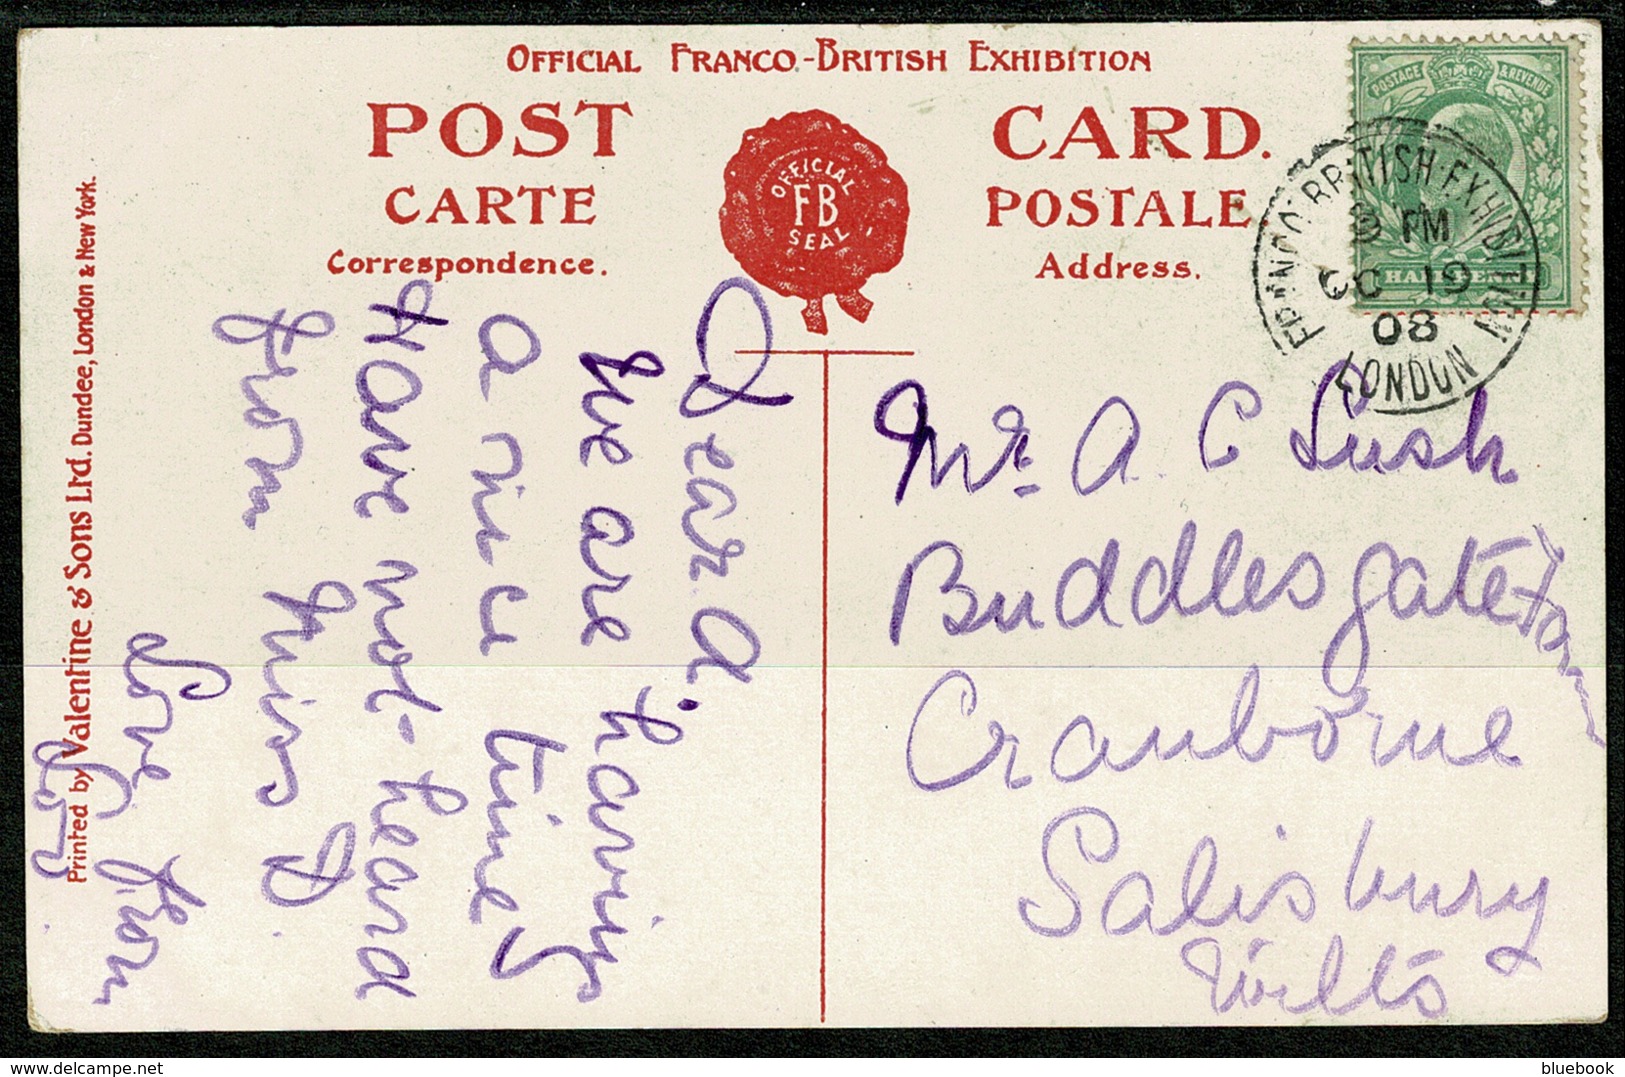 OFFICIAL FRANCO-BRITISH EXHIBITION
POST CARD.
CARTE POSTALE
Correspondence. Address.
OFFICIAL
FB
SEAL
POSTAGE & REVENUE
HALFPENNY
FRANCO BRITISH EXHIBITION
PM
OC 19
08
LONDON
Dear A.
We are having
a nice time
Have not heard
from Miss B.
Love from
Mr. A. C Lush
Buddlesgate Farm
Cranborne
Salisbury
Wilts
Printed by Valentine & Sons Ltd. Dundee, London & New York.
bluebook